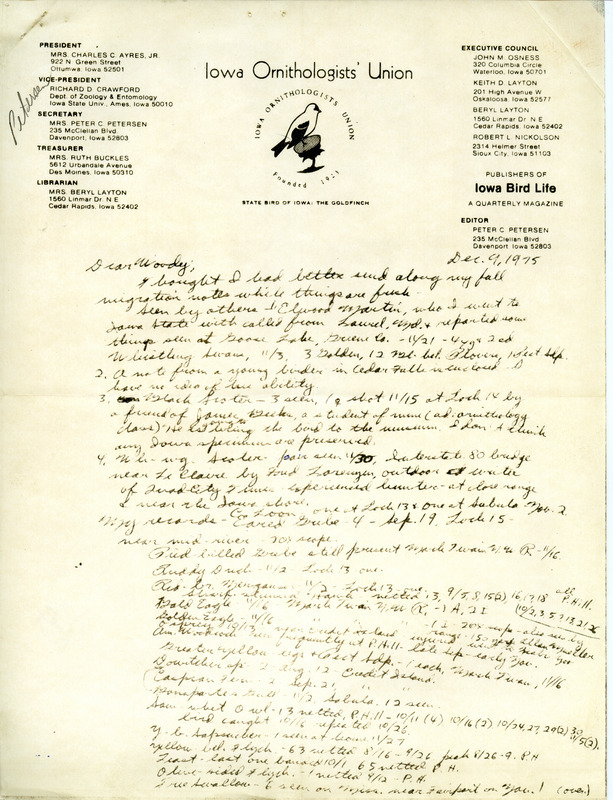 PRESIDENT
MRS. CHARLES C. AYRES, JR.
922 N Green Street
Ottumwa, Iowa 52501
VICE-PRESIDENT
RICHARD D. CRAWFORD
Dept. of Zoology & Entomology
Iowa State Univ., Ames, Iowa 50010
SECRETARY
MRS. PETER C. PETERSEN
235 McClellan Blvd.
Davenport, Iowa 52803
TREASURER
MRS. RUTH BUCKLES
5612 Urbandale Avenue
Des Moines, Iowa 50310
LIBRARIAN
MRS. BERYL LAYTON
1560 Linmar Dr. N E
Cedar Rapids, Iowa 52402
Petersen
Iowa Ornithologists' Union
IOWA ORNITHOLOGISTS UNION
Founded 1923
STATE BIRD OF IOWA: THE GOLDFINCH
EXECUTIVE COUNCIL
JOHN M. OSNESS
320 Columbia Circle
Waterloo, Iowa 50701
KEITH D. LAYTON
201 High Avenue W
Oskaloosa, Iowa 52577
BERYL LAYTON
1560 Linmar Dr. N E
Cedar Rapids, Iowa 52402
ROBERT L. NICKOLSON
2314 Helmer Street
Sioux City, Iowa 51103
PUBLISHERS OF
Iowa Bird Life
A QUARTERLY MAGAZINE
EDITOR
PETER C. PETERSEN
235 McClellan Blvd
Davenport, Iowa 52803
Dec. 9, 1975
Dear Woody,
I thought I had better send along my fall
migration notes while things are fresh.
Seen by others - 1. Elwood Martin, who I went to
Iowa State with called from Laurel, Md. & reported some
things seen at Goose Lake, Greene Co. - 11/21 - 4
Whistling Swans, 11/3, 3 Golden, 12 Bl. bel. Plovers, 1 Least Sdp.
2. A note from a young birder in Cedar Falls is enclosed. I
have no idea of his ability.
3. Black Scoter - 3 seen, 1 shot 11/15 at Lock 14 by
a friend of James, a student of mine (ad. ornithology
class) He is the bird to the museum. I don't think
any Iowa specimens are preserved.
4. Wh-wg. Scoter - pair seen 11/30, Interstate 80 bridge
near Le Claire by Fred Lorenzen, outdoor writer
of Quad City Times - experienced hunter - at close range
& near the Iowa shore.
C. Loon - one at Lock 13 & one at Sabula Nov. 2
My records - Eared Grebe - 4 - Sep. 19, Lock 15 -
near mid-river - 20x scope.
Pied billed Grebe still present Mark Twain N.W.R. 11/16
Ruddy Duck - 11/2 Lock 13 one.
Red-br. Merganser - 11/2 - Lock 13 - one
Sharp-shinned Hawk netted 13, 9/5, 8, 15(2), 16, 17, 18 all P.H.II.
Bald Eagle 11/16 Mark Twain N.W.R. - 1 A, 2 I
Golden Eagle - 11/16 - 1 I - 20x scope - also seen by
Osprey 10/17 near Credit Island
Am. Woodcock seen frequently at P.H.II -
Greater Yellow-legs & Least Sdp. - 1 each, Mark Twain, 11/16
Dowitcher sp. 2 Aug. 12 - Credit Island.
Caspian Tern - 2 Sep. 21 "
Bonaparte's Gull - 11/2 Sabula. 12 seen.
Saw-whet Owl - 13 netted, P.H.II - 10/11 (4) 10/16 (2) 10/24, 27, 29(2) 30, 11/5(2).
bird caught 10/16 repeated 10/26.
Y-b. Sapsucker - 1 seen at home 11/27
Yellow bel. Flyc. - 63 netted 8/16 - 9/26 peak 8/26 - 9. P.H.
Least - last one banded 10/1 65 netted P.H.
Olive-sided Flyc. - 1 netted 9/12 - P.H.
Tree Swallow - 6 seen on Miss. near Fairport on Nov. 1 (over)